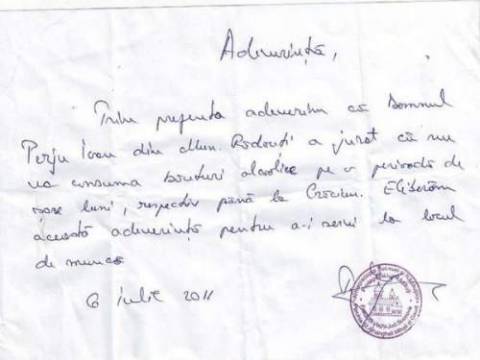 Adeverință,
Prin prezenta adeverim că domnul
Perju Ioan din Mun. Rădăuți a jurat că nu
va consuma băuturi alcolice pe o perioadă de
șase luni, respectiv până la Crăciun. Eliberăm
această adeverință pentru a-i servi la locul
de muncă
6 iulie 2011